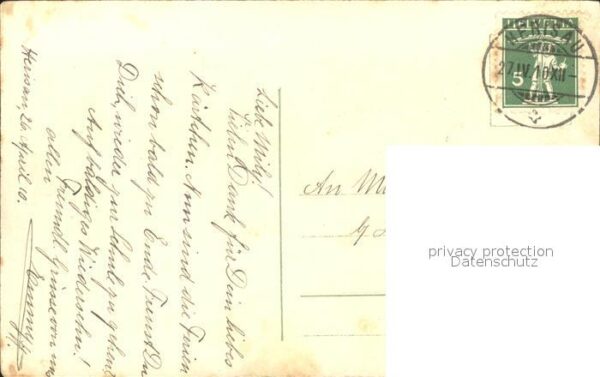 Herisau 26. April 10.
Liebe Mily!
Vielen Dank für Dein liebes
Kärtchen. Nun sind die Ferien
schon bald zu Ende. Freust Du
Dich, wieder zur Schule zu gehen?
Auf baldiges Wiedersehn!
Freundl. Grüsse von uns
allen
An
HELVETIA
5
HERISAU
27.IV.10.XII
privacy protection
Datenschutz